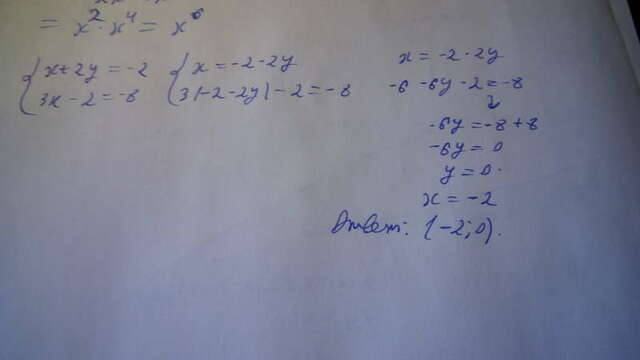 = x² · x⁴ = x⁶
{ x + 2y = -2
3x - 2 = -8
{ x = -2 - 2y
3(-2 - 2y) - 2 = -8
x = -2 - 2y
-6 - 6y - 2 = -8
-6y = -8 + 8
-6y = 0
y = 0.
x = -2
Ответ: (-2; 0).